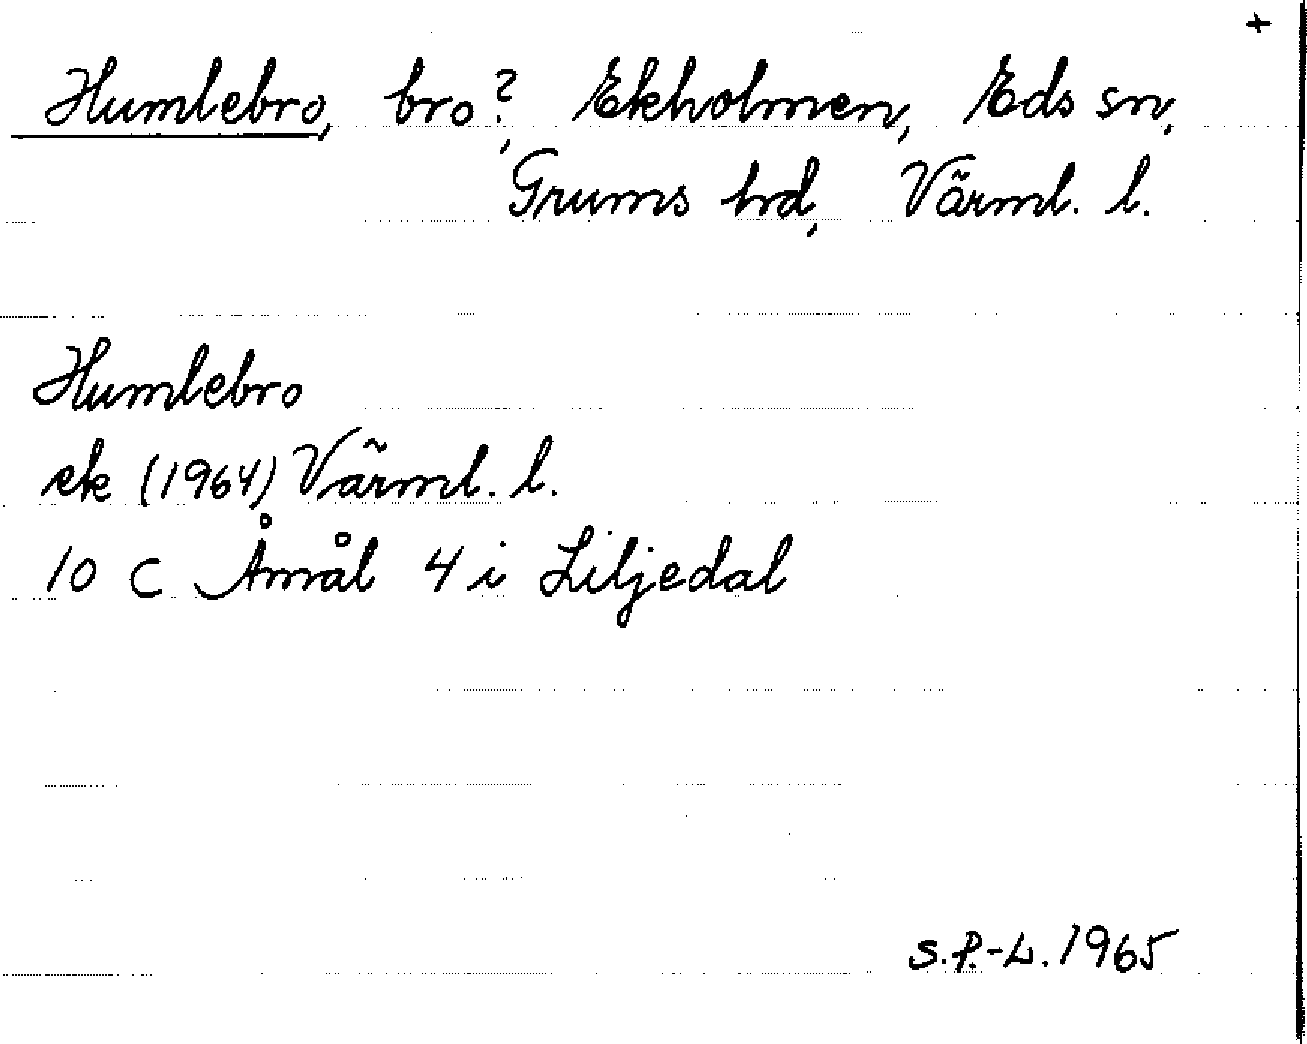 +
Humlebro, bro?, Ekholmen, Eds sn,
Grums hd, Värml. l.
Humlebro
ek (1964) Värml. l.
10 C Åmål 4 i Liljedal
S.P.-L. 1965